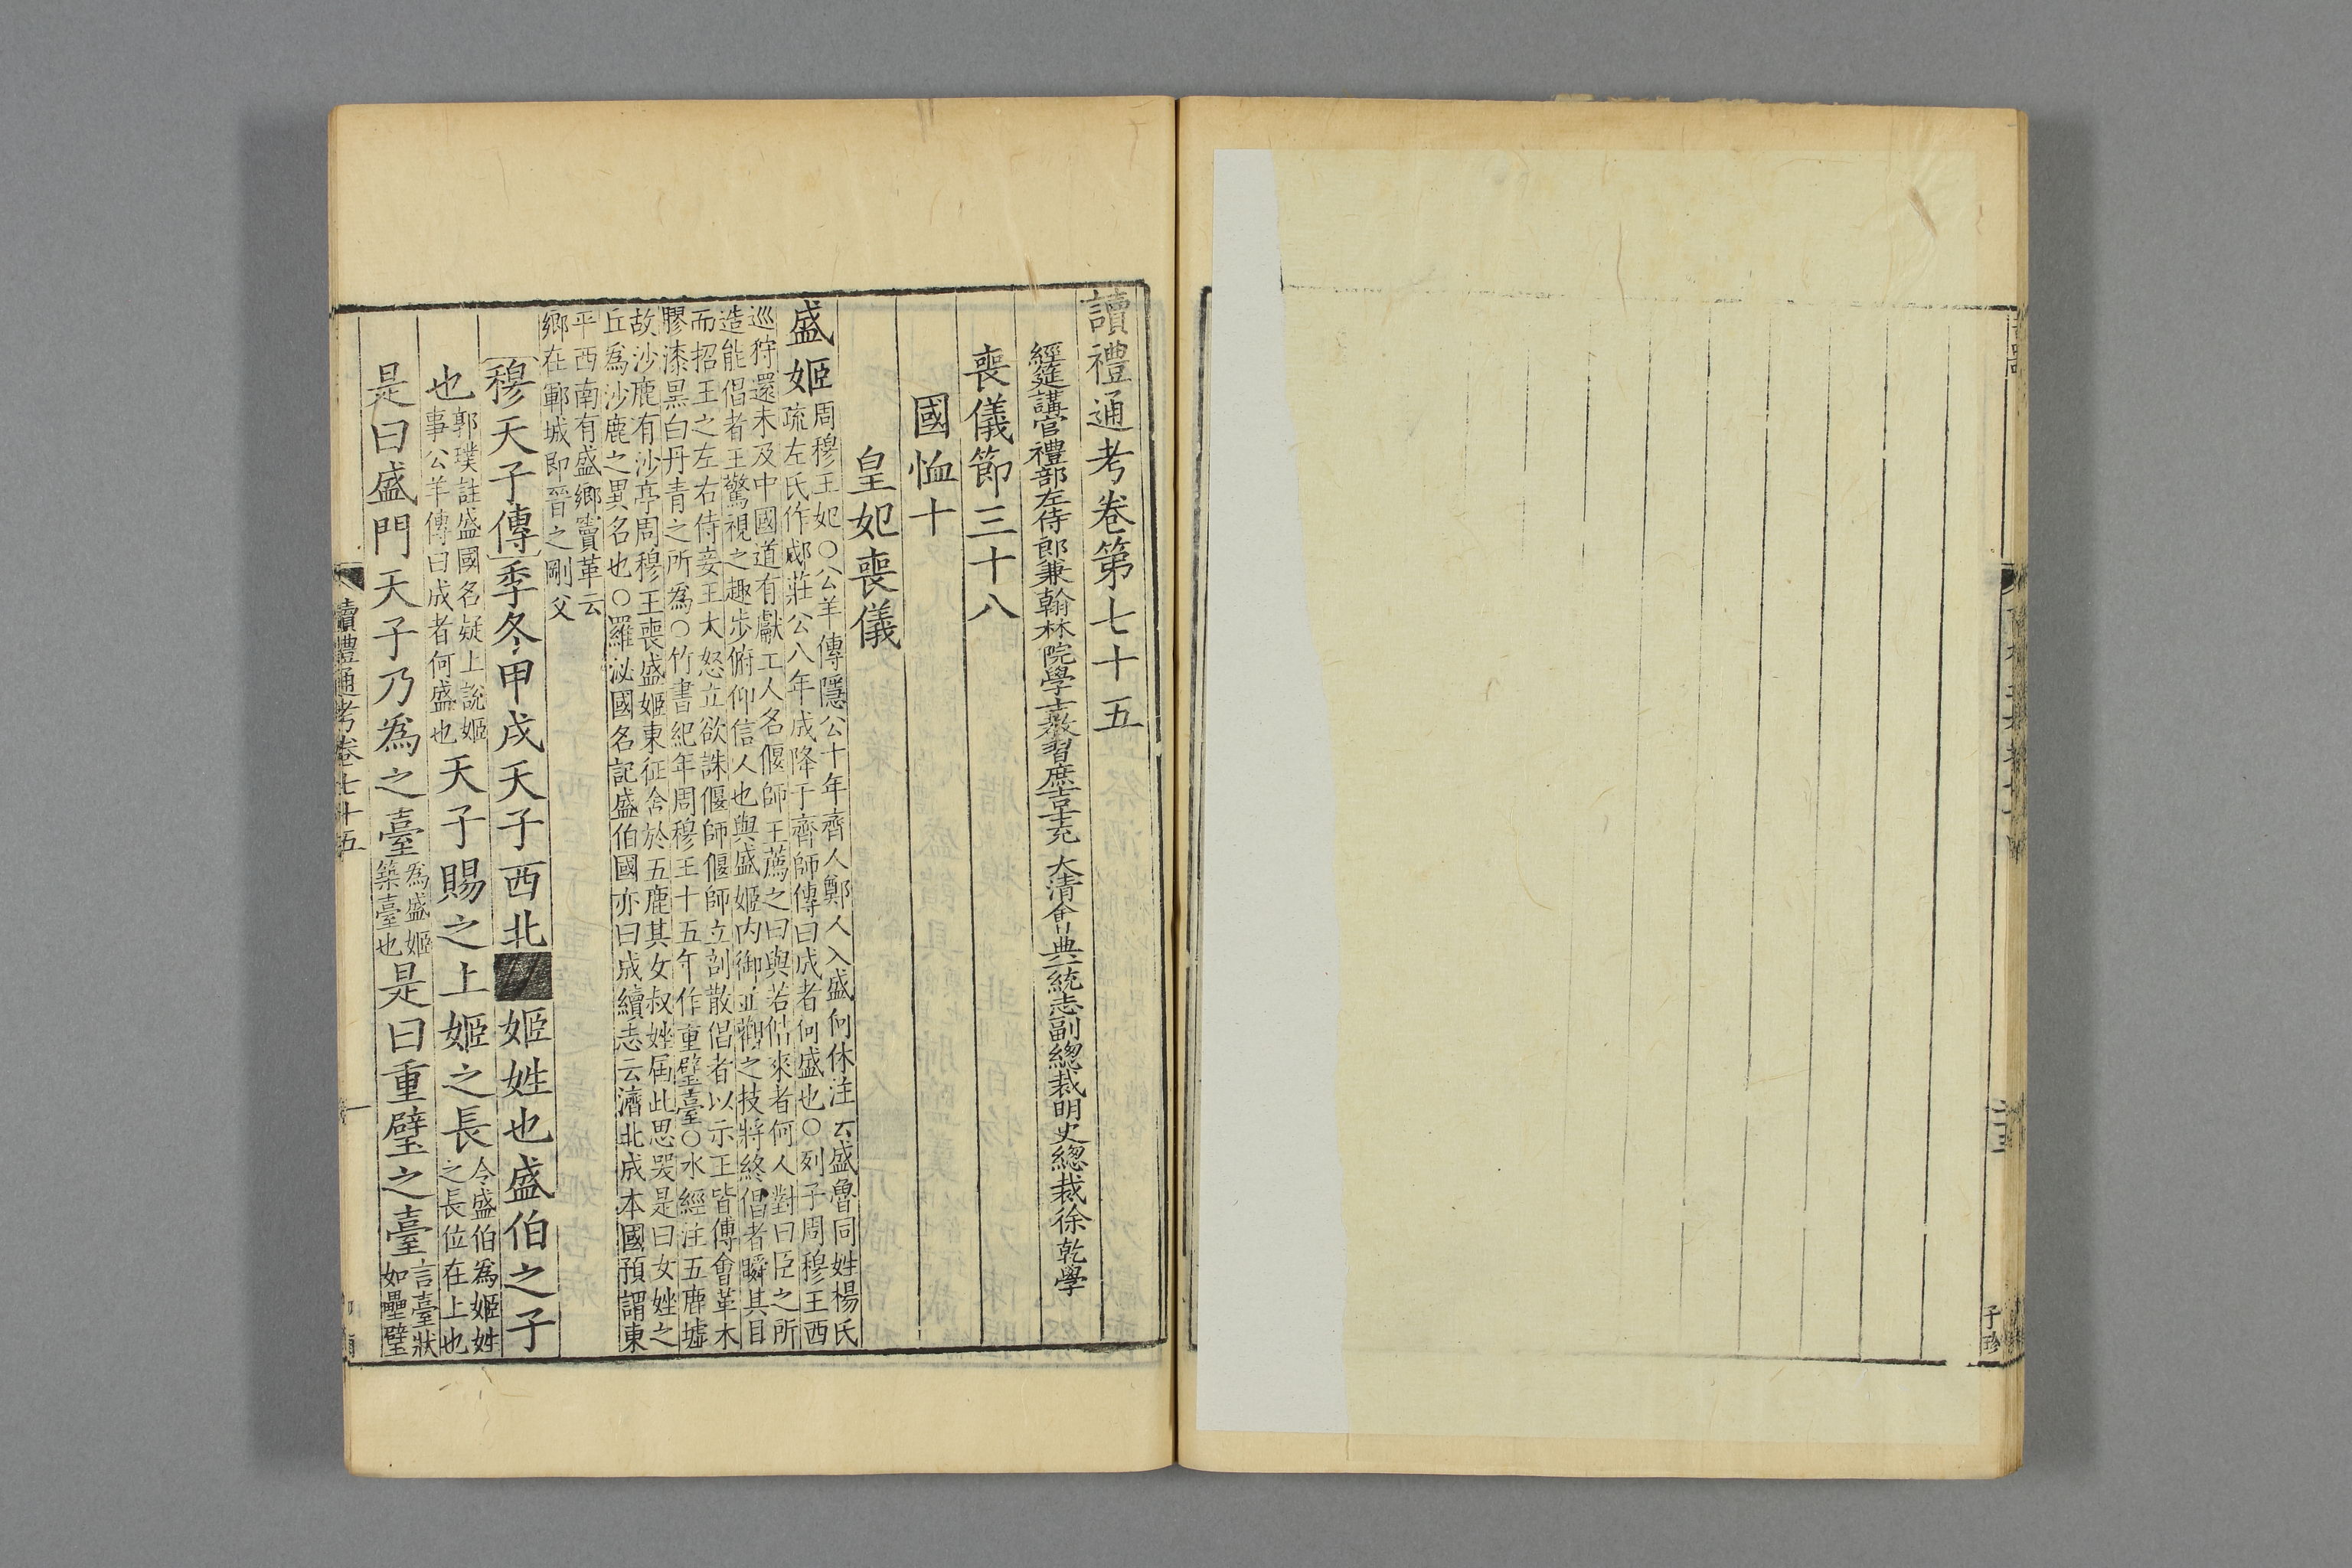 讀禮通考卷第七十五
經筵講官禮部左侍郎兼翰林院學士教習庶吉士充 大清會典一統志副總裁明史總裁徐乾學
喪儀節三十八
國恤十
皇妃喪儀
盛姬
周穆王妃○公羊傳隱公十年齊人鄭人入盛何休注云盛魯同姓楊氏
疏左氏作郕莊公八年成降于齊師傳曰成者何盛也○列子周穆王西
巡狩還未及中國道有獻工人名偃師王薦之曰與若俱來者何人對曰臣之所
造能倡者王驚視之趣步俯仰信人也與盛姬內御並觀之技將終倡者瞬其目
而招王之左右侍妾王大怒立欲誅偃師偃師立剖散倡者以示王皆傅會革木
膠漆黑白丹青之所為○竹書紀年周穆王十五年作重璧臺○水經注五鹿墟
故沙鹿有沙亭周穆王喪盛姬東征舍於五鹿其女叔㛗屆此思哭是曰女㛗之
丘為沙鹿之異名也○羅泌國名記盛伯國亦曰成續志云濟北成本國預謂東
平西南有盛鄉竇革云
鄉在鄆城即晉之剛父
穆天子傳季冬甲戌天子西北■姬姓也盛伯之子
也
郭璞註盛國名疑上說姬
事公羊傳曰成者何盛也
天子賜之上姬之長
令盛伯為姬姓
之長位在上也
是曰盛門天子乃為之臺
為盛姬
築臺也
是曰重璧之臺
言臺狀
如壘璧
讀禮通考卷七十五
一
子珍